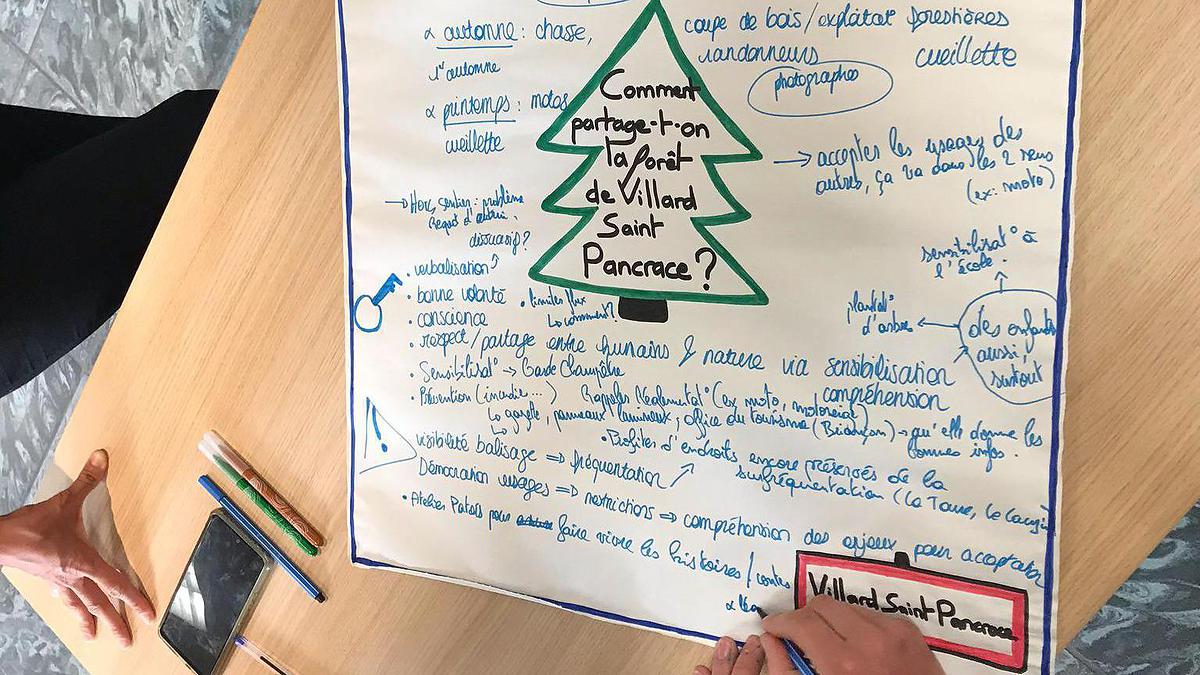 ∝ automne : chasse,
1er automne
∝ printemps : motos
cueillette
coupe de bois/exploitat° forestières
randonneurs
cueillette
photographes
Comment
partage-t-on
la forêt
de Villard
Saint
Pancrace ?
→ accepter les usages des
autres, ça va dans les 2 sens
(ex: moto)
→ Hors sentier : problème
Regard d'autrui.
dissuasif ?
• verbalisation
• bonne volonté
• conscience
• limites flux
↳ comment ?
• respect/partage entre humains & nature via sensibilisation
compréhension
sensibilisat° à
l'école.
plantat°
d'arbre
des enfants
aussi,
surtout
• Sensibilisat° → Garde Champêtre
• Prévention (incendie...) Rappeler Réglementat° (ex moto, motoneige)
↳ google, panneaux lumineux, office du tourisme (Briançon) → qu'elle donne les
bonnes infos.
!
visibilité balisage ⇒ fréquentation
• Profiter d'endroits encore préservés de la
surfréquentation (La Taure,
Démocration usages ⇒ restrictions ⇒ compréhension des enjeux pour acceptation
• Atelier Patois pour faire vivre les histoires/contes
Villard Saint Pancrace